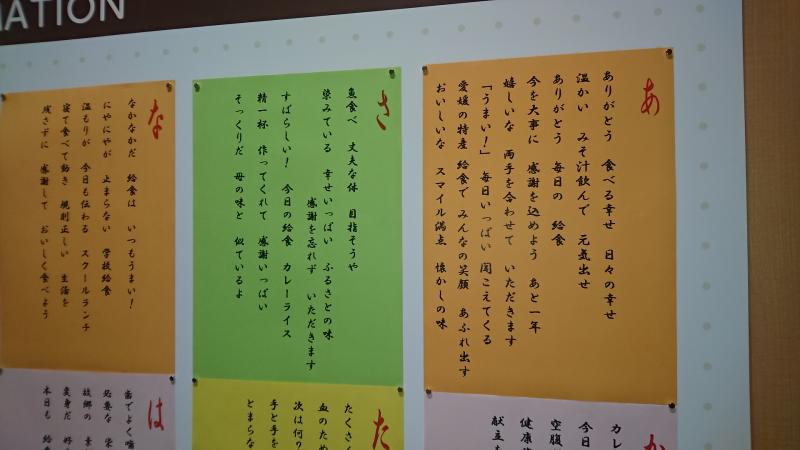 MATION
あ
ありがとう 食べる幸せ 日々の幸せ
温かい みそ汁飲んで 元気出せ
ありがとう 毎日の 給食
今を大事に 感謝を込めよう あと一年
嬉しいな 両手を合わせて いただきます
「うまい！」 毎日いっぱい 聞こえてくる
愛媛の特産 給食で みんなの笑顔 あふれ出す
おいしいな スマイル満点 懐かしの味
さ
魚食べ 丈夫な体 目指そうや
染みている 幸せいっぱい ふるさとの味
感謝を忘れず いただきます
すばらしい！ 今日の給食 カレーライス
精一杯 作ってくれて 感謝いっぱい
そっくりだ 母の味と 似ているよ
な
なかなかだ 給食は いつもうまい！
にやにやが 止まらない 学校給食
温もりが 今日も伝わる スクールランチ
寝て食べて動き 規則正しい 生活を
残さずに 感謝して おいしく食べよう
か
カレ
今日
空腹
健康
献立
た
たくさ
血のため
次は何？
手と手を
とまらな
は
歯でよく噛
必要な 栄
故郷の
変身だ 好
本日も 給食